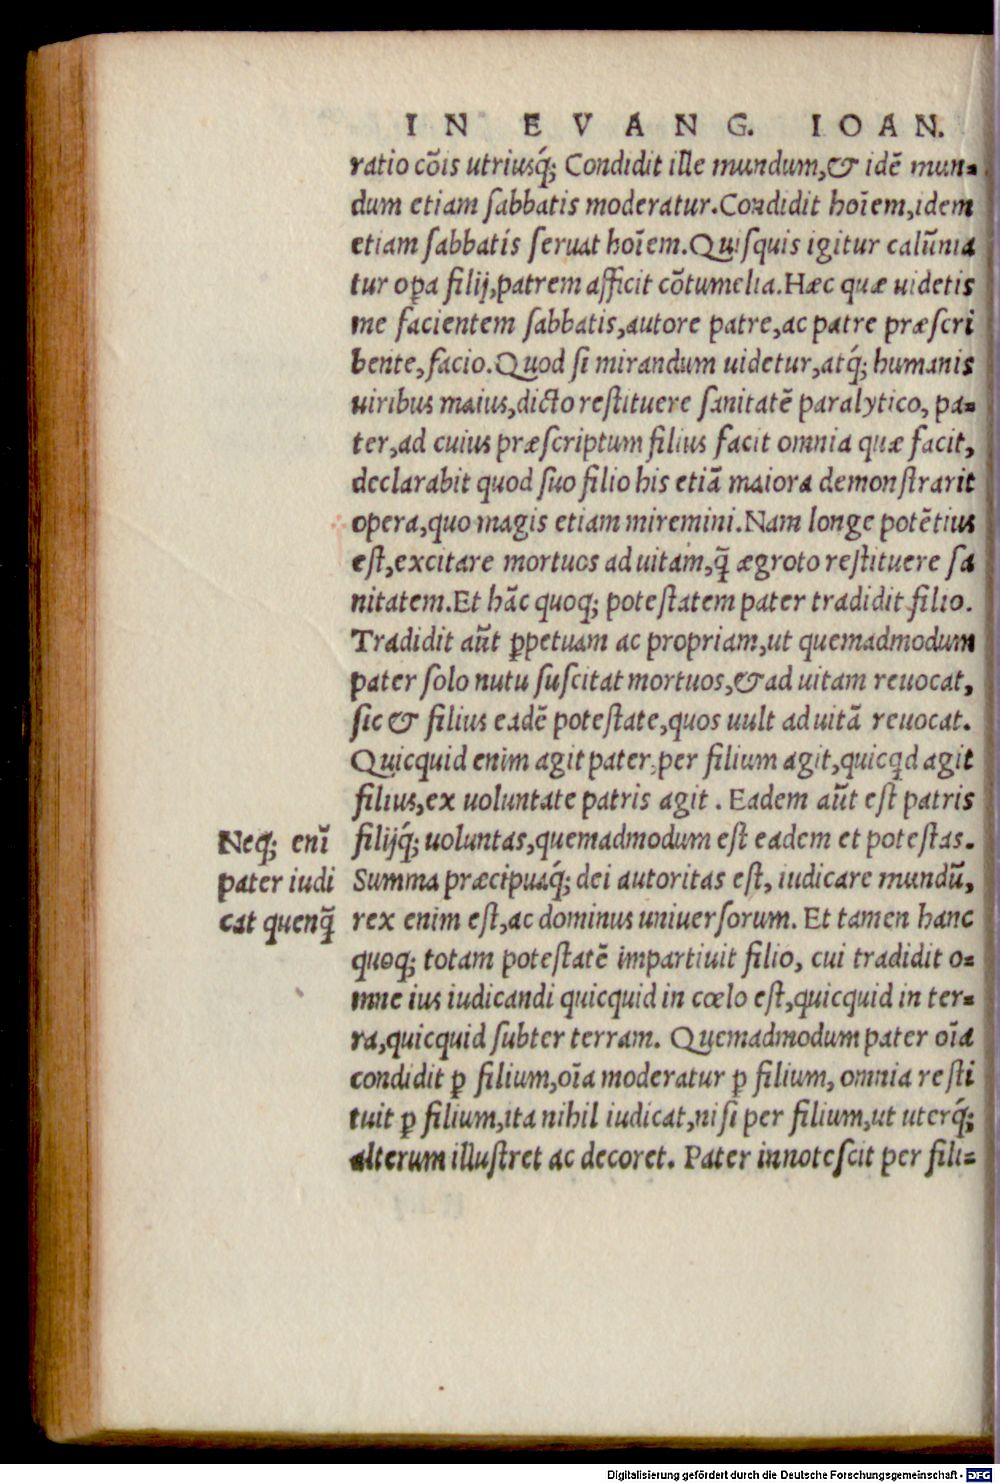 IN EVANG. IOAN.
ratio cõis utriusq́; Condidit ille mundum,& idẽ mun-
dum etiam ſabbatis moderatur.Condidit hoĩem,idem
etiam ſabbatis ſeruat hoĩem.Quiſquis igitur calũnia
tur oꝑa filij,patrem afficit cõtumelia.Hæc quæ uidetis
me facientem ſabbatis,autore patre,ac patre præſcri
bente,facio.Quod ſi mirandum uidetur,atq́; humanis
uiribus maius,dicto reſtituere ſanitatẽ paralytico, pa-
ter,ad cuius præſcriptum filius facit omnia quæ facit,
declarabit quod ſuo filio his etiã maiora demonſtrarit
opera,quo magis etiam miremini.Nam longe potẽtius
eſt,excitare mortuos ad uitam,q̃ ægroto reſtituere ſa
nitatem.Et hãc quoq; poteſtatem pater tradidit filio.
Tradidit aũt ꝑpetuam ac propriam,ut quemadmodum
pater ſolo nutu ſuſcitat mortuos,& ad uitam reuocat,
ſic & filius eadẽ poteſtate,quos uult ad uitã reuocat.
Quicquid enim agit pater,per filium agit,quicqd agit
filius,ex uoluntate patris agit . Eadem aũt eſt patris
filijq́; uoluntas,quemadmodum eſt eadem et poteſtas.
Summa præcipuaq́; dei autoritas eſt, iudicare mundũ,
rex enim eſt,ac dominus uniuerſorum. Et tamen hanc
quoq; totam poteſtatẽ impartiuit filio, cui tradidit o-
mne ius iudicandi quicquid in cœlo eſt,quicquid in ter-
ra,quicquid ſubter terram. Quemadmodum pater oĩa
condidit ꝑ filium,oĩa moderatur ꝑ filium, omnia reſti
tuit ꝑ filium,ita nihil iudicat,niſi per filium,ut uterq́;
alterum illuſtret ac decoret. Pater innoteſcit per fili-
Neq; enĩ
pater iudi
cat quenq̃
Digitalisierung gefördert durch die Deutsche Forschungsgemeinschaft - DFG